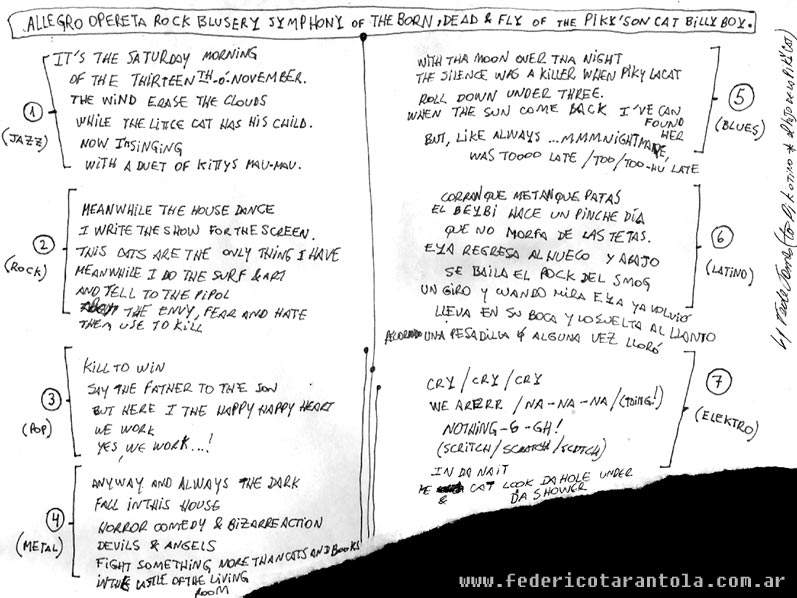 ALLEGRO OPERETA ROCK BLUSERY SYMPHONY OF THE BORN, DEAD & FLY OF THE PIKY'SON CAT BILLY BOY.
① (JAZZ)
IT'S THE SATURDAY MORNING
OF THE THIRTEENTH-O'-NOVEMBER.
THE WIND ERASE THE CLOUDS
WHILE THE LITTLE CAT HAS HIS CHILD.
NOW IN SINGING
WITH A DUET OF KITTYS MAU-MAU.
② (ROCK)
MEANWHILE THE HOUSE DANCE
I WRITE THE SHOW FOR THE SCREEN.
THIS CATS ARE THE ONLY THING I HAVE
MEANWHILE I DO THE SURF & ART
AND TELL TO THE PIPOL
ABOUT THE ENVY, FEAR AND HATE
THEM USE TO KILL
③ (POP)
KILL TO WIN
SAY THE FATHER TO THE SON
BUT HERE I THE HAPPY HAPPY HEART
WE WORK
YES, WE WORK...!
④ (METAL)
ANYWAY AND ALWAYS THE DARK
FALL IN THIS HOUSE
HORROR COMEDY & BIZARRE ACTION
DEVILS & ANGELS
FIGHT SOMETHING MORE THAN CATS AND BOOKS
IN THE CASTLE OF THE LIVING
ROOM
⑤ (BLUES)
WITH THA MOON OVER THA NIGHT
THE SILENCE WAS A KILLER WHEN PIKY LACAT
ROLL DOWN UNDER THREE.
WHEN THE SUN COME BACK I'VE CAN
FOUND
HER
BUT, LIKE ALWAYS ...MMMNIGHTMARE,
WAS TOOOO LATE / TOO / TOO-HU LATE
⑥ (LATINO)
CORRANQUE METANQUE PATAS
EL BEYBI HACE UN PINCHE DÍA
QUE NO MORFA DE LAS TETAS.
EYA REGRESA AL HUECO Y ABAJO
SE BAILA EL ROCK DEL SMOG
UN GIRO Y CUANDO MIRA EYA YA VOLVIÓ
LLEVA EN SU BOCA Y LO SUELTA AL LLANTO
UNA PESADILLA Q ALGUNA VEZ LLORÓ
⑦ (ELEKTRO)
CRY / CRY / CRY
WE ARERRR / NA-NA-NA / (TOING!)
NOTHING-G-GH!
(SCRITCH / SCRATCH / SCOTCH)
IN DA NAIT
CAT LOOK DA HOLE UNDER
& DA SHOWER
www.federicotarantola.com.ar